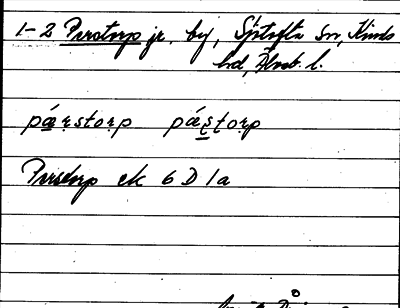 1-2 Perstorp jr. by, Sjötofta sn, Kinds
hd, Älvsb. l.
pá̱ṛstoṛp pás̱̣ṭoṛp
Perstorp ek 6 D 1a